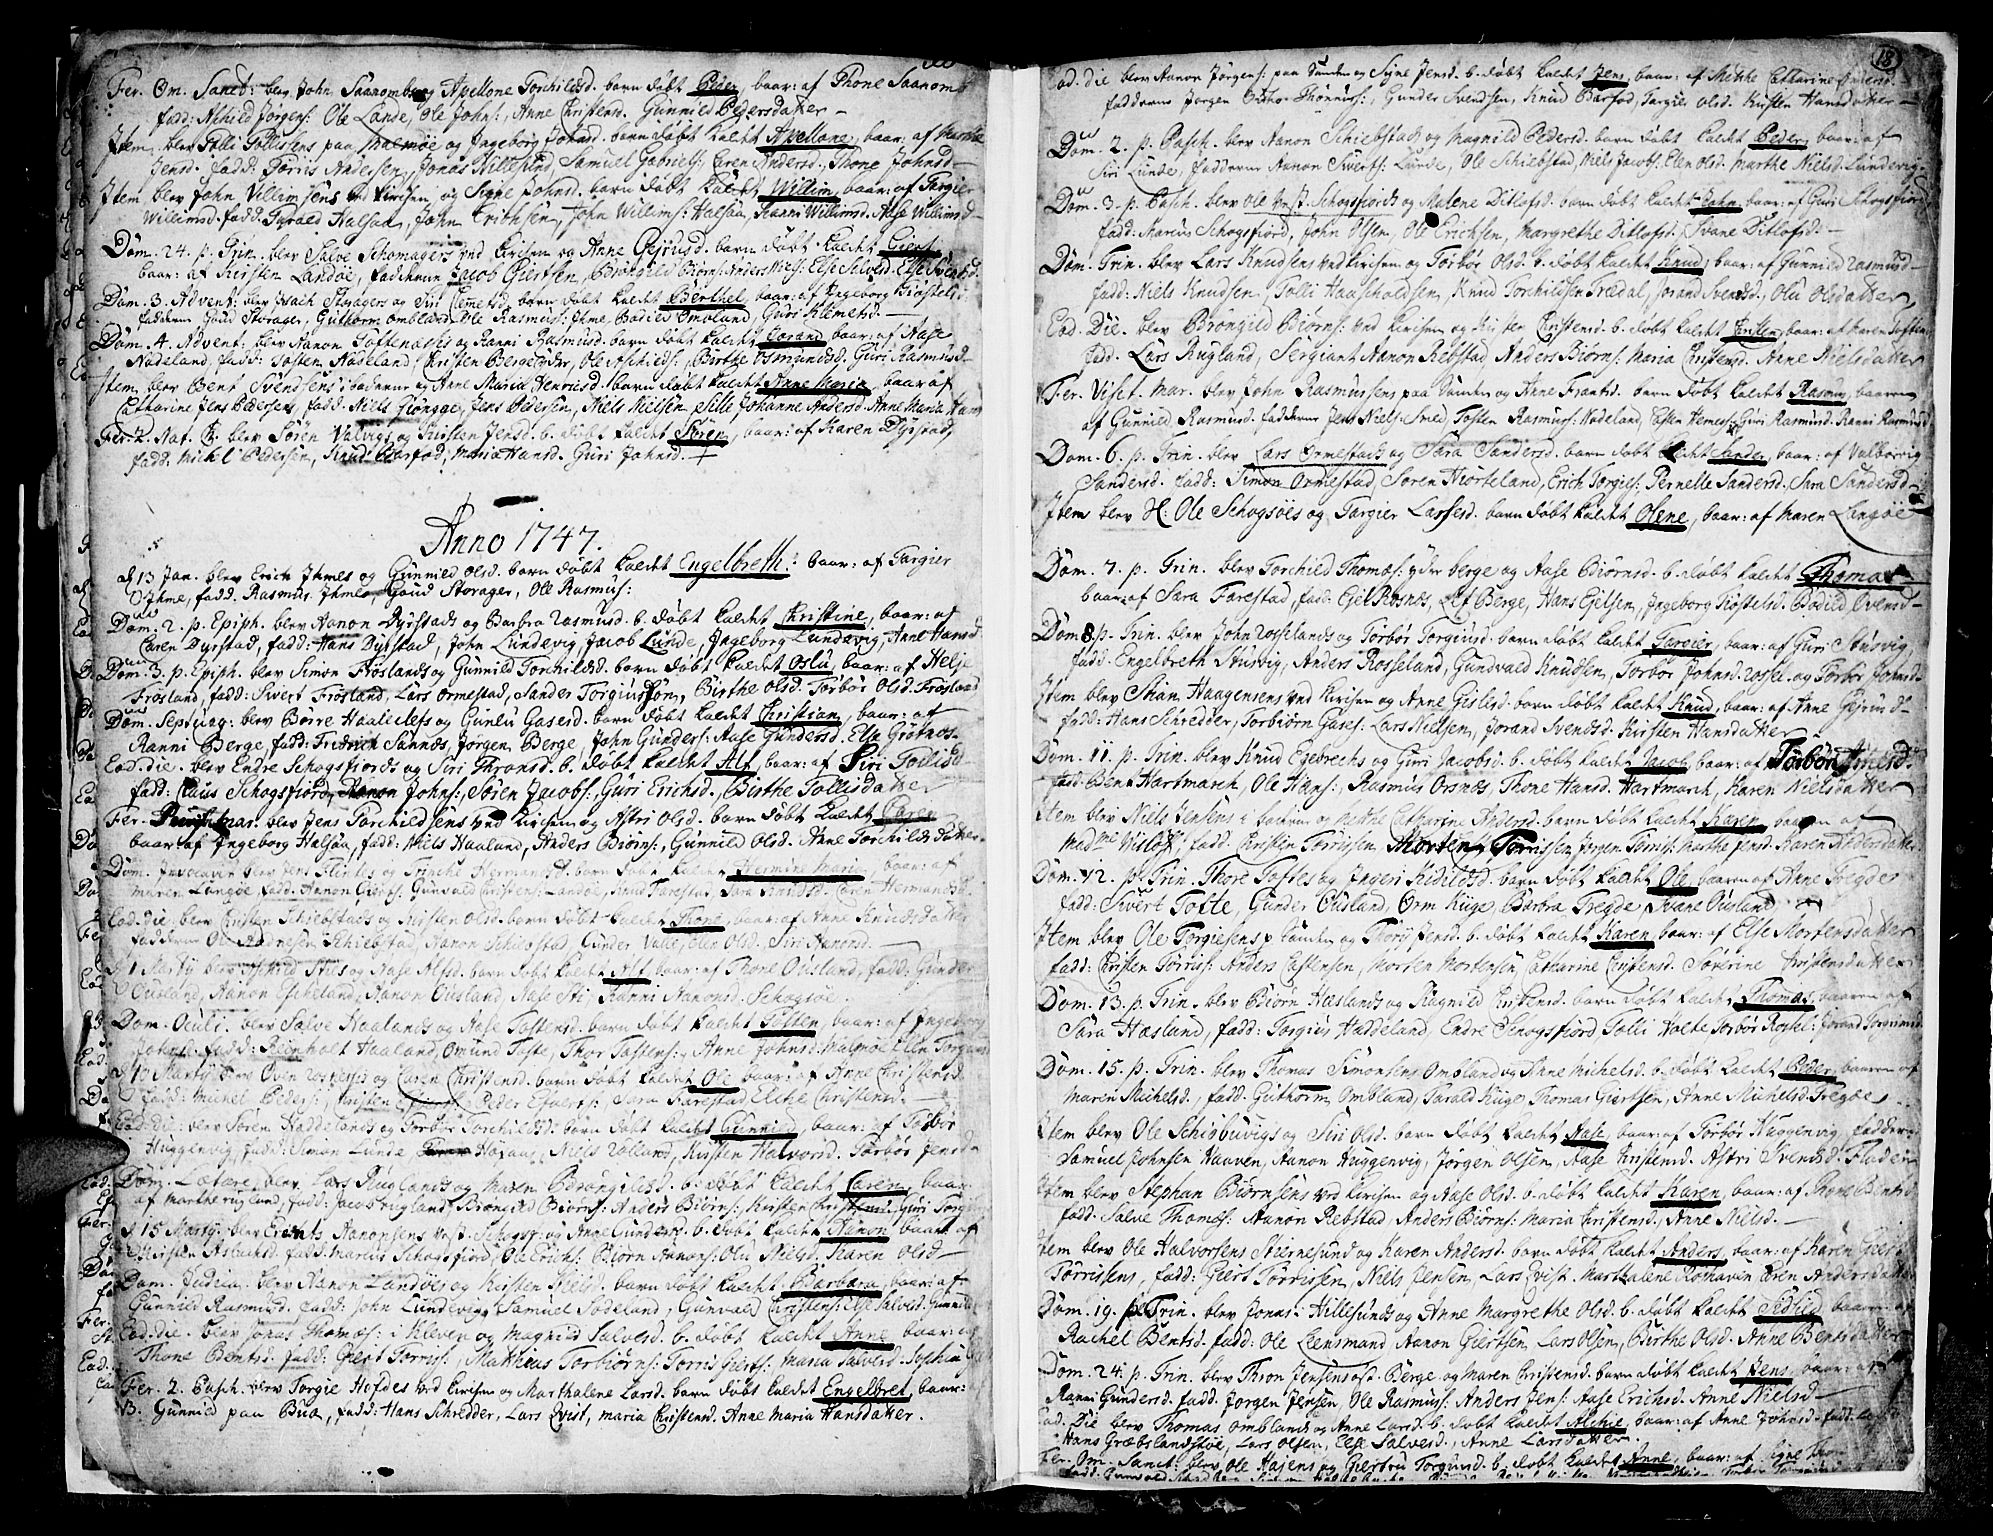 Fer. Om. Sanct: blev John Saanombs og Apellone Torchildsd. barn döbt Peder, baar: af Thone Saanomb
fadd: Nihild Jörgens: Ole Lande, Ole Johns:, Anne Christensd. Gunnild Pedersdatter
Item blev Tolli Tollisens paa Malmøe og Ingeborg Johnsd. barn döbt kaldet Apellone, baar: af Marthe
Jensd. fadd: Törris Andersen, Jonas Hillesund, Samuel Gabriels: Caren Andersd. Thone Johnsd
Item blev John Villimsens ved Kirken, og Signe Johnsd. barn döbt kaldet Willim, baar: af Targier
Willimsd. fadd: Tarald Halsaa, John Erichsen, John Willims: Halsaa, Ranni Willimsd. Aase Willimsd
Dom. 24. p. Trin. blev Salve Schomagers ved Kirken og Anne Gejrusd. barn döbt kaldet Giert
baar: af Kirsten Landøe, fadderne Jacob Giertsen, Brönild Biörns: Anders Niels: Else Salvesd. Else
Dom. 3. Advent: blev Isach Storagers og Siri Clemetsd. barn döbt kaldet Berthel, baar: af Ingeborg Kiöstelsd.
fadderne Goud Storager, Guthorm Ombland, Ole Rasmus: Ihme, Bodild Omland, Guri Klemetsd.
Dom. 4. Advent: blev Aanon Toftenæss og Ranni Rasmusd. barn döbt kaldet Jorand, baar: af Aase
Nodeland, fadd: Tosten Nodeland, Christen Berge, Ole Aschields:, Birthe Osmundsd. Guri Rasmusd
Item blev Bent Svendsens og Anne Maria Henricsd. barn döbt kaldet Anne Maria, baar: af
Catharine Jens Pedersens, fadd: Niels Giöngge, Jens Pedersen, Niels Nielsen, Sille Johanne Andersd. Anne Maria Hans
Fer. 2. Nat. Ch: blev Sören Valvigs og Kirsten Jensd. b. döbt kaldet Sören, baar: af Karen Dyrstad,
fadd: Michl Pedersen, Knud Barfod, Maria Hansd. Guri Johnsd.
Anno 1747.
d 13 Jan. blev Erich Ihmes og Gunnild Olsd. barn döbt kaldet Engelbreth: baar: af Targier
Ihme, fadd. Rasmus Ihme, Goud Storager, Ole Rasmus:
Dom. 2. p. Epiph. blev Aanon Dyrstads og Barbra Rasmusd: b. döbt kaldet Christine, baar: af
Caren Dyrstad, fadd: Hans Dyrstad, John Lundevig, Jacob Lunde, Ingeborg Lundevig, Anne Hansd
Dom. 3. p. Epiph. blev Simon Fröslands og Gunnild Torchildsd. barn döbt kaldet Oslu, baar: af Helje
Frösland, fadd: Sivert Frösland, Lars Ormestad, Sander Torgiussön, Birthe Olsd. Torbör Olsd. Frösland
Dom. Septuag: blev Börre Haalielefs og Gunlu Gasesd. barn döbt kaldet Christian, baar: af
Ranni Berge, fadd: Fridrich Sannæs, Jörgen Berge, John Gunders: Aase Gundersd. Else Grotnes
Ead. die. blev Endre Schogsfjords og Siri Thronsd. b. döbt kaldet Alf, baar: af Siri Tollisd
fadd: Claus Schogsfiord, Aanon Johns:, Sören Jacobs:, Guri Erichsd., Birthe Tollisdatter
Fer. Purif: Mar: blev Jens Torchildsens ved Kirken og Astri Olsd. barn döbt kaldet Caren
baar: af Ingeborg Halsaa, fadd: Niels Haaland, Anders Biörns:, Gunnild Olsd. Anne Torchildsdatter
Dom. Invocavit blev Jens Flintes og Trinche Hermansd. barn döbt kaldet Hermine Marie, baar: af
Maren Langöe, fadd: Aanon Gierts: Gunvald Christens: Landöe, Knud Farestad, Sara Knudsd. Caren Hermansd.
Ead. die: blev Christen Schiebstads og Kirsten Olsd. barn döbt kaldet Thone, baar: af Anne Knudsdatter
fadderne Ole Andresen Schiebstad, Aanon Schiebstad, Gunder Valle, Elen Olsd. Siri Aanonsd.
d 1 Martij blev Aschild Sties og Aase Alfsd. barn döbt kaldet Alf, baar: af Thone Ousland, fadd: Gunder
Ousland, Aanon Escheland, Aanon Ousland, Aase Sti, Ranni Aanonsd. Schogsöe.
Dom. Oculi. blev Salve Haalands og Aase Tostensd. barn döbt kaldet Tosten, baar: af Ingeborg
Johnsd. fadd: Reinholt Haaland, Omund Tofte, Thor Tostens: Anne Johnsd: Malmöe, Elin Torgiusd
d 10 Martij blev Oven Rosnes og Caren Christensd. barn döbt kaldet Ole, baar: af Anne Christensd.
fadd: Michel Peders:, Christen, Peder Efverts:, Sara Farestad, Elche Christensd.
Ead: die: blev Sören Haddelands og Torbör Torchildsd. barn döbt kaldet Gunnild, baar: af Torbör
Huggenvig, fadd: Simon Lunde, Höyaas, Niels Volland, Kirsten Halvorsd. Torbör Jensd
Dom. Lætare, blev Lars Ruglands og Maren Brönildsd. b: döbt kaldet Caren, baar:
af Marthe Rugland, fadd: Jacob Rugland, Brönild Biörns: Anders Biörns:, Kirsten Christens: Guri Torgi
d 15 Martij: blev Erents Aanonsens Vest Schogsö: og Anne Gundersd. b. döbt kaldet Aanon baar: af
Kirsten Aslachsd. fadd: Marcus Schogsfiord, Ole Erichs: Biörn Aanons: Olu Nielsd. Karen Olsd
Dom. Judica. blev Aanon Landöes og Kirsten Nielsd. barn döbt kaldet Barbara, baar: af
Gunnild Rasmusd. fadd: John Lundevig, Samuel Södeland, Gunvald Christens: Else Salvesd. Gunnild
Ead: die. blev Jonas Thomæs: i Kleven og Magnild Salvesd. b. döbt kaldet Anne, baar: af
Thone Bentsd. fadd: Giert Torris:, Matthias Torbiörns: Torris Gierts: Maria Salvesd. Sophia
Fer. 2. Pasch. blev Torgie Hofdes ved Kirken og Marthalene Larsd. barn döbt kaldet Engelbret, baar:
B. Gunnild paa Bua, fadd: Hans Schredder, Lars Qvist, Maria Christensd. Anne Maria Hansdatter.
18
Ead. Die blev Aanon Jörgens: paa Sanden og Signe Jensd. b. döbt kaldet Jens, baar: af Mette Catharine
fadderne Jorgen Ditho. Thönnes:, Gunder Svendsen, Knud Barfod, Targier Olsd. Kirsten Hansdatter
Dom. 2. p. Pasch. blev Aanon Schiebstads og Magnild Pedersd. barn döbt kaldet Peder, baar: af
Siri Lunde, fadderne Aanon Siverts: Lunde, Ole Schiebstad, Niels Jacobs: Elen Olsd. Marthe Nielsd. Lundevig
Dom. 3. p. Pasch. blev Ole Vest Schogsfiords og Malene Ditlofsd. barn döbt kaldet John, baar: af Guri Schogsfiord
fadd: Marcus Schogsfiord, John Olsen, Ole Erichsen, Margrethe Ditlofsd. Svane Ditlofsd.
Dom. Trin. blev Lars Knudsens ved Kirken og Torbör Olsd. b. döbt kaldet Knud, baar: af Gunnild Rasmusd
fadd: Niels Knudsen, Tolli Haavholdsen, Knud Torchildsen Trædal, Jorand Svendsd, Olu Olsdatter
Ead. Die. blev Brönild Biörns: ved Kirken og Kirsten Christensd. b. döbt kaldet Christen, baar: af Karen Tosten
fadd. Lars Rugland, Sergiant Aanon Rebstad, Anders Biörns: Maria Christensd. Anne Nielsdatter
Fer. Visit. Mar. blev John Rasmussens paa Sanden og Anne Frantsd. barn döbt kaldet Rasmus, baaren
af Gunnild Rasmusd. fadderne Jens Niels: Smed, Tosten Rasmus: Nodeland, Esten Hernes, Guri Rasmusd. Ranni Rasmusd
Dom. 6. p. Trin. blev Lars Ormestads og Sara Sandersd. barn döbt kaldet Sander, baar: af Valborrig
Sandersd. fadd: Simon Ormestad, Sören Hiorteland, Erich Torgies: Pernelle Sandersd. Sara Sandersd
Item blev H: Ole Schogsöes og Targier Larsesd. barn döbt kaldet Olene, baar: af Maren Langöe
Dom. 7. p. Trin. blev Torchild Thomæs: yder Berge og Aase Biörnsd. b. döbt kaldet Thomas
baar: af Sara Farestad, fadd: Ejel Rosnös, Elf Berge, Hans Ejelsen, Ingeborg Kiöstelsd. Bodild Ovensd
Dom 8. p. Trin. blev John Rosselands og Torbör Torgiusd. barn döbt kaldet Targier, baar: af Guri Stusvig,
fadd: Engelbreth Stusvig, Anders Rosseland, Gundvald Knudsen, Torbör Johnsd. Rossel: og Torbör Johnsd.
Item blev Stian Haagensens ved Kirken og Anne Gislesd. barn döbt kaldet Knud, baar: af Anne Gejrusd
fadd: Hans Schredder, Torbiörn Gases: Lars Nielsen, Jorand Svendsd. Kirsten Hansdatter
Dom. 11. p. Trin. blev Knud Egebrechs og Guri Jacobsd. b. döbt kaldet Jacob, baar: af Torbör Amesd:
fadd: Bent Hartmarch, Ole Hans:, Rasmus Orsnös, Thone Hansd. Hartmarch, Karen Nielsdatter
Item blev Niels Jensens og Mette Catharine Andersd. barn döbt kaldet Karen, baaren af
Madme Wiloh: fadd: Christen Törrissen, Morten Törrissen, Jörgen Törris: Marthe Jensd. Karen Pedersdatter
Dom. 12. p. Trin. Thore Toftes og Ingeri Kidildsd. barn döbt kaldet Ole, baaren af Anne Tregde
fadd: Sivert Tofte, Gunder Ousland, Orm Kige, Barbra Tregde, Svane Ousland
Item blev Ole Torgiesens p Sanden og Thory Jensd. b. döbt kaldet Karen, baar: af Else Mortensdatter
fadd: Christen Törris: Anders Castensen, Morten Mortensen, Catharine Christensd. Söverine Christensdatter
Dom. 13. p. Trin. blev Biörn Hæslands og Ragnild Christensd. barn döbt kaldet Thomas, baaren af
Sara Hæsland, fadd: Torgius Haddeland, Endre Schogsfiord, Tolli Holte, Torbör Rossel: Jorand Torgiusd
Dom. 15. p. Trin. blev Thomas Simonsens Ombland og Anne Michelsd. b. döbt kaldet Peder, baaren af
Maren Michelsd., fadd: Guthorm Ombland, Tarald Kige, Thomas Giertsen, Anne Michelsd. Tregde.
Item blev Ole Schiöbuvigs og Siri Olsd. barn döbt kaldet Aase, baar: af Torbör Huggenvig, fadderne
Samuel Johnsen Haaven, Aanon Huggenvig, Jörgen Olsen, Aase Christensd. Astri Svendsd. Fladen
Item blev Stephan Biörnsens ved Kirken og Aase Olsd. b. döbt kaldet Karen, baar: af Thone Bentsd.
fadd. Salve Thomæs: Aanon Rebstad, Anders Biörns: Maria Christensd., Anne Nielsd.
Item blev Ole Halvorsens Stiernesund og Karen Andersd. barn döbt kaldet Anders, baar: af Karen Giert
Törrissens, fadd: Giert Törrissen, Niels Jensen, Lars Qvist. Marthalene Romavin, Caren Andersdatter
Dom. 19. p. Trin. blev Jonas Hillesunds og Anne Margrethe Olsd. b. döbt kaldet Sidsild, baaren af
Rachel Bentsd. fadd: Ole Leensmand, Aanon Giertsen, Lars Olsen, Birthe Olsd. Anne Bentsdatter
Dom. 24. p. Trin. blev Thron Jensens öst. Berge og Maren Christensd. barn döbt kaldet Jens, baar: af
Ranni Gundersd. fadd: Jorgen Jensen, Ole Rasmus: Anders Jens: Aase Erichsd. Anne Nielsd
Ead: Die blev Thomas Omblands og Anne Larsd. b. döbt kaldet Alchie, baar: af Anne Johnsd. fadd:
Hans Græbslandstöe, Lars Olsen, Else Salvesd., Anne Larsdatter.
Fer. Om. Sanct: blev Ole Højens og Giertru Torgiusd. b. döbt kaldet Anne, baar: af Signe